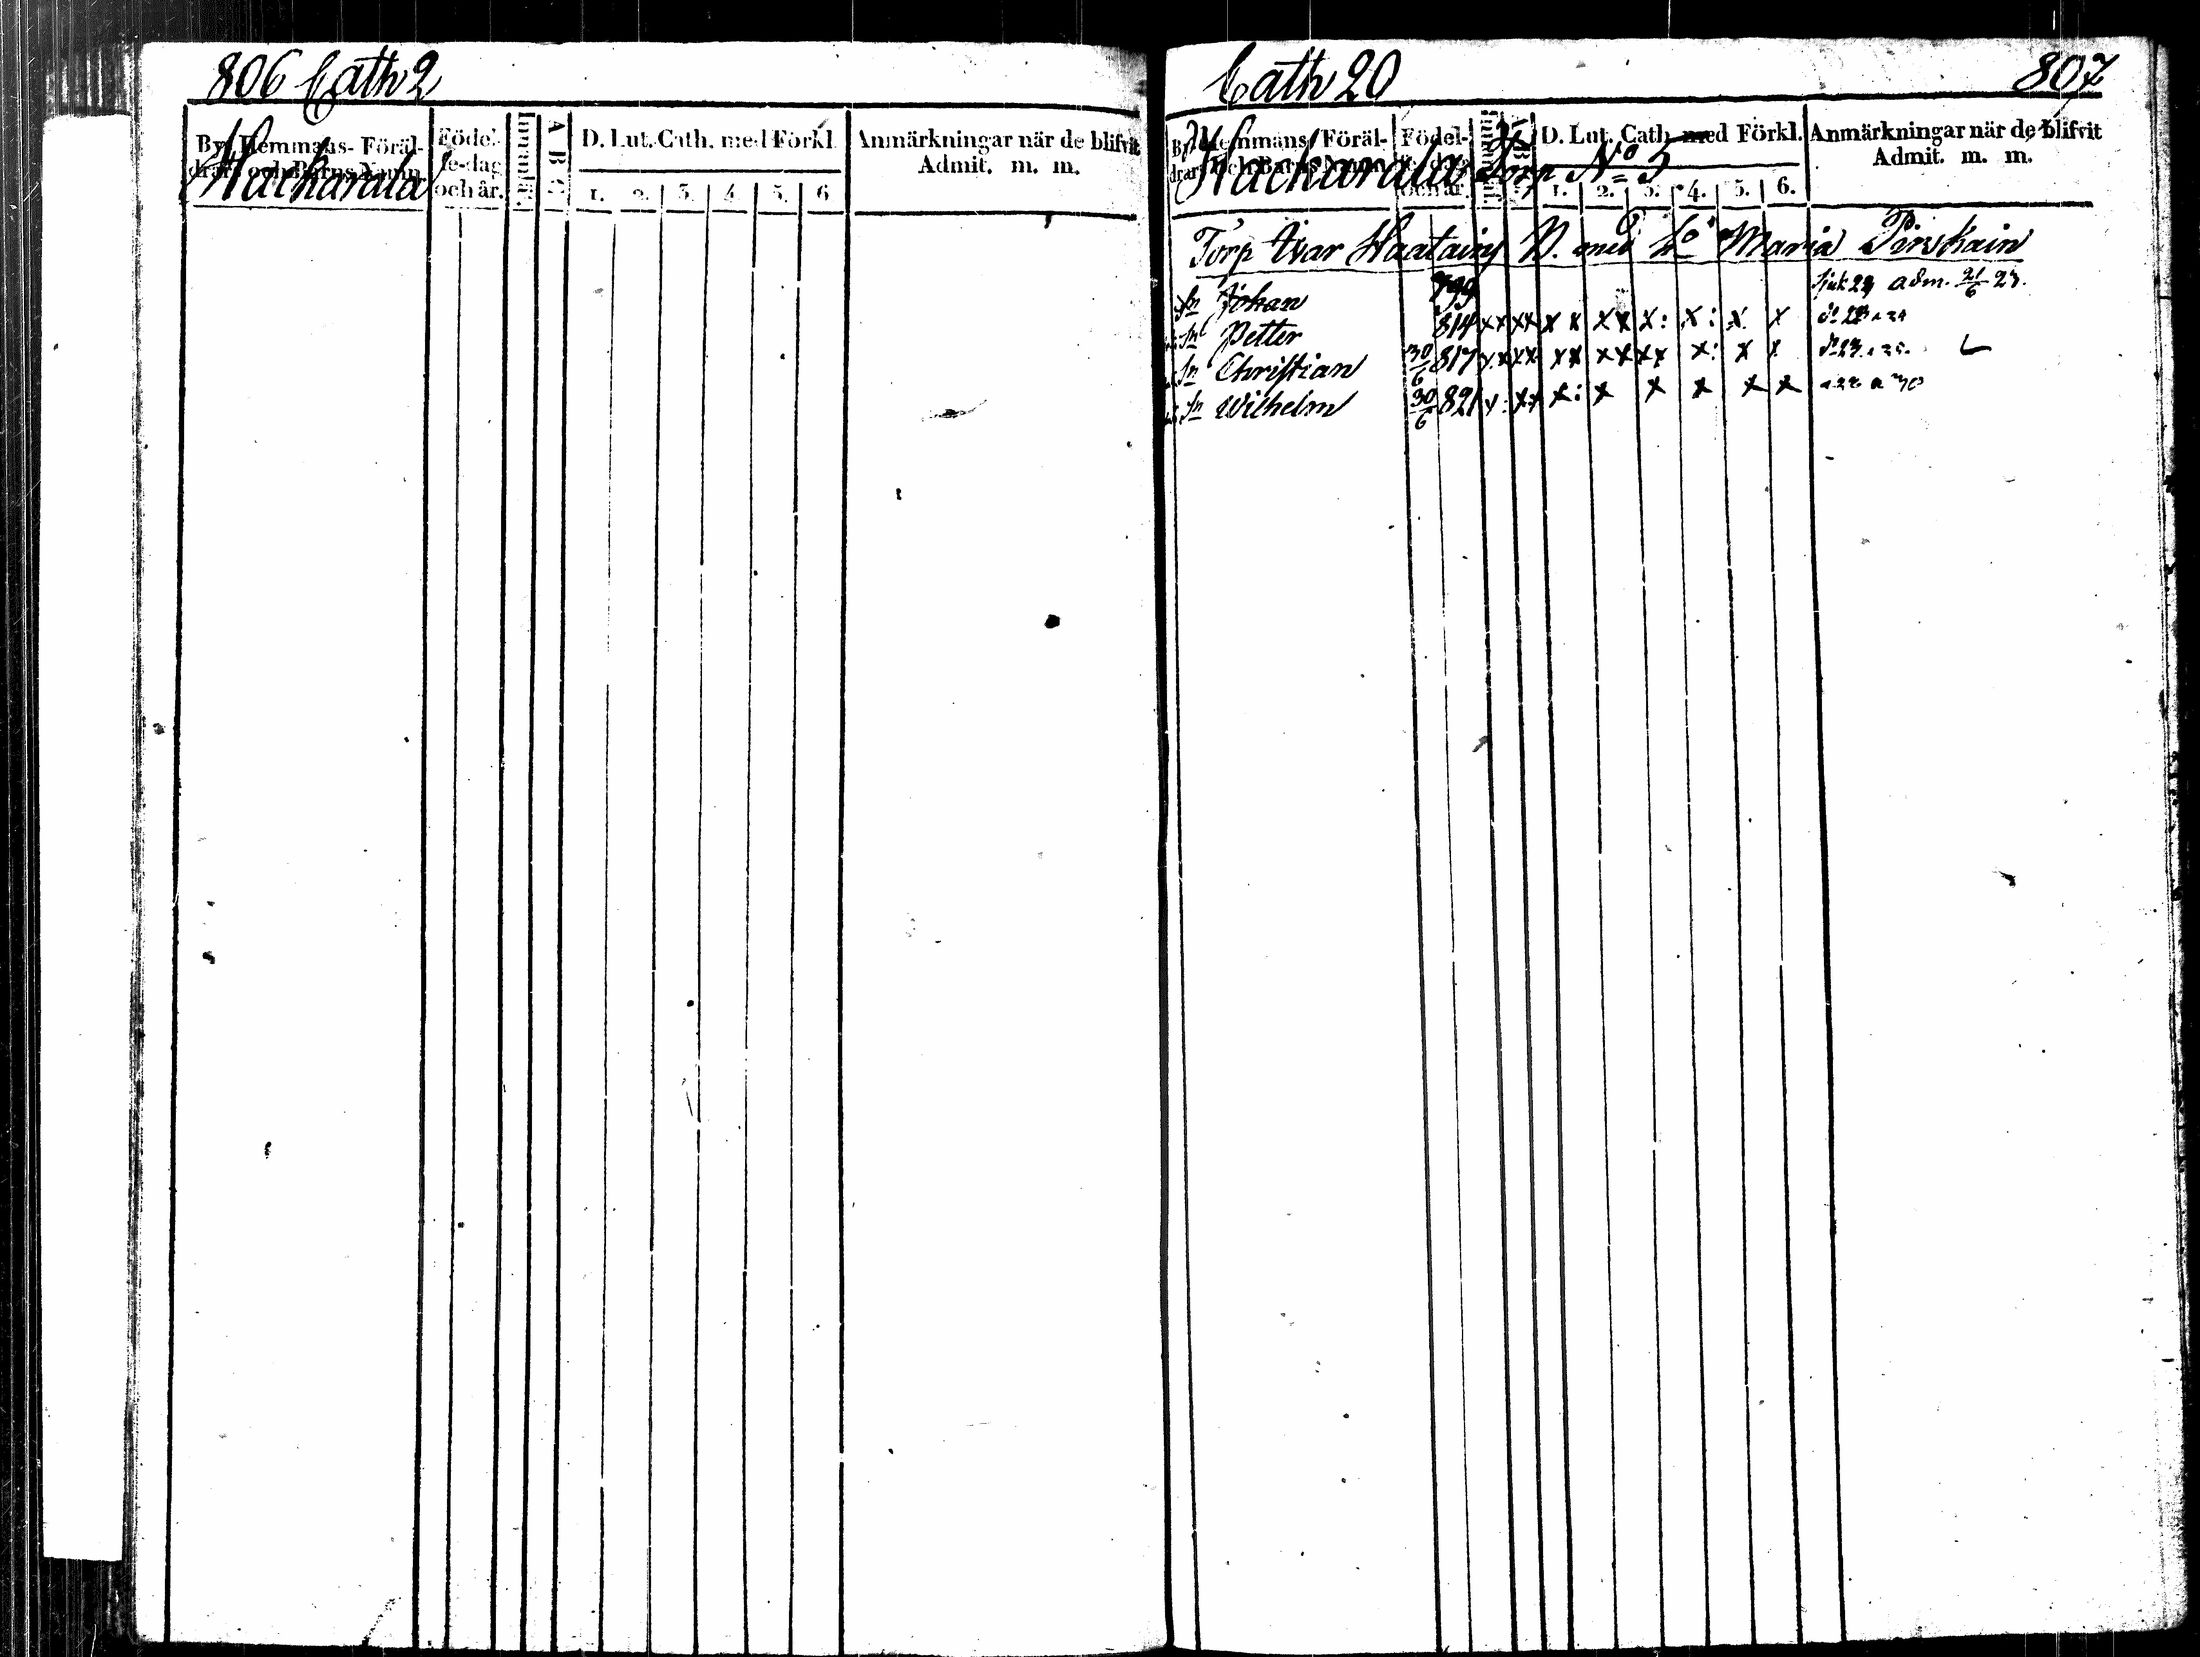 806 Cath 2
By, Hemmans- Föräl-
drars och Barns Namn.
Hackarala
Födel-
se-dag
och år.
Innanläs.
A B C
D. Lut. Cath. med Förkl.
1. 2. 3. 4. 5. 6
Anmärkningar när de blifvit
Admit. m. m.
Cath 20 807
By, Hemmans- Föräl-
drars och Barns Namn.
Hackarala Torp No 5
Födel-
se-dag
och år.
Innanläs.
A B C
D. Lut. Cath. med Förkl.
1. 2. 3. 4. 5. 6.
Anmärkningar när de blifvit
Admit. m. m.
Torp Ivar Haatain med Maria Pirskain
Sn Johan 799 adm. 21/6 23.
Sn Petter 814 x x x x x x x x x : x : x x do 23
Sn Christian 30/6 817 x x x x x x x x x x x : x x do 23
Sn Wilhelm 30/6 821 x : x x x : x x x x x